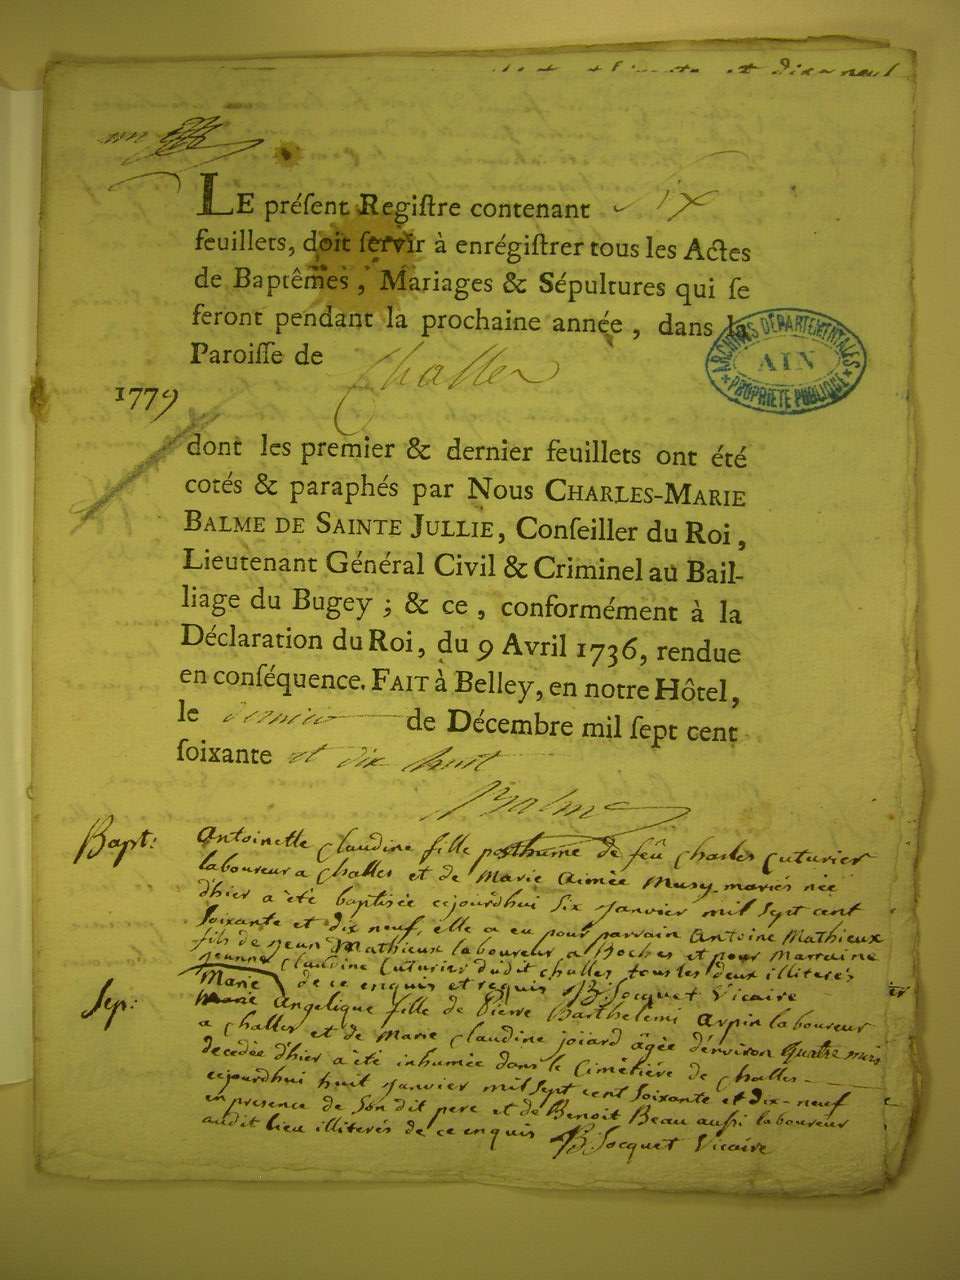 et dix neuf
LE préſent Regiſtre contenant Six
feuillets, doit ſervir à enrégiſtrer tous les Actes
de Baptêmes, Mariages & Sépultures qui ſe
feront pendant la prochaine année, dans la
Paroiſſe de Challes
ARCHIVES DÉPARTEMENTALES
AIN
PROPRIÉTÉ PUBLIQUE
1779
dont les premier & dernier feuillets ont été
cotés & paraphés par Nous CHARLES-MARIE
BALME DE SAINTE JULLIE, Conſeiller du Roi,
Lieutenant Général Civil & Criminel au Bail-
liage du Bugey ; & ce, conformément à la
Déclaration du Roi, du 9 Avril 1736, rendue
en conſéquence. FAIT à Belley, en notre Hôtel,
le dernier de Décembre mil ſept cent
ſoixante et dix huit
Balme
Bapt: Antoinette Claudine fille posthume de feû Charles Cuturier
laboureur a Challes et de Marie Aimée Musy mariés née
d'hier a été baptisée cejourdhui Six janvier mil sept cent
Soixante et dix neuf, elle a eu pour parrain Antoine Mathieux
fils de jean Mathieux laboureur a Boches et pour Marraine
jeanne Claudine Cuturier dudit Challes tous les deux illiterés
de ce enquis et requis B: Socquet Vicaire
Sep: Marie Angelique fille de Pierre Barthelemi Arpin laboureur
a Challes et de Marie Claudine joiard âgée d'énviron quatre mois
decedée d'hier a été inhumée dans le Cimétiere de Challes
cejourdhui huit janvier mil sept cent Soixante et dix-neuf
en presence de Son dit pere et de Benoit Beau aussi laboureur
audit lieu illiterés de ce enquis B: Socquet Vicaire